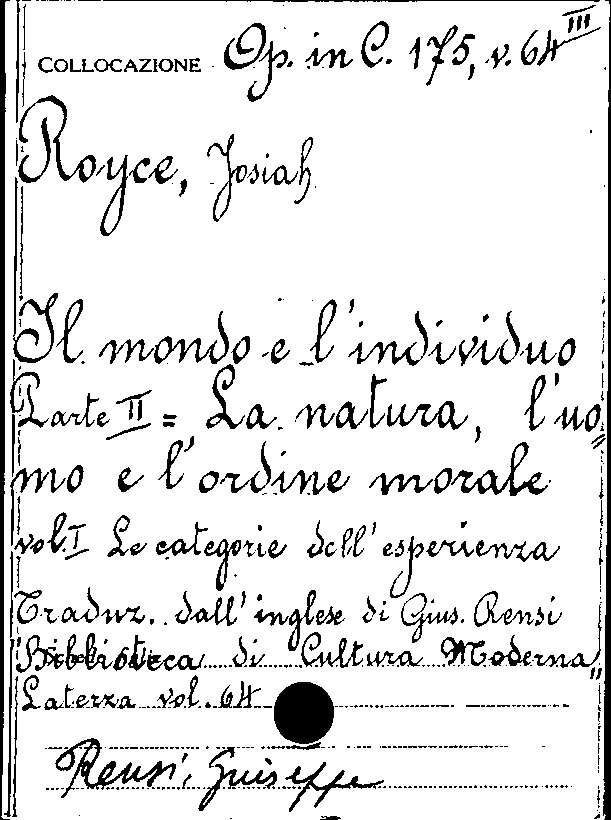 COLLOCAZIONE Op. in C. 175, v. 64 III
Royce, Josiah
Il mondo e l'individuo
Parte II = La natura, l'uo=
mo e l'ordine morale
vol. I Le categorie dell'esperienza
Traduz. dall'inglese di Gius. Rensi
"Biblioteca di Cultura Moderna"
Laterza vol. 64
Rensi, Guiseppe